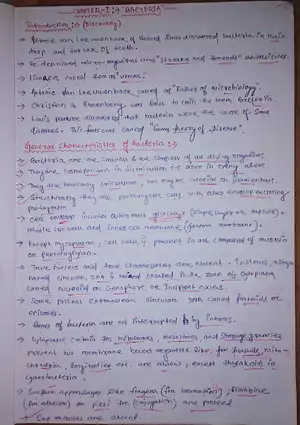 CHAPTER-1 :→ "BACTERIA"
Introduction :→ (Discovery)
→ Antonie Van Leeuwenhoek of Holland first discovered bacteria in rain
drop and tartar of teeth.
→ He described micro-organisms are "Minute and animalcules.
→ Linaeus called them as vermes.
→ Antonie Van Leeuwenhoek called as "Father of microbiology".
→ Christian G. Ehrenberg was first to coin the term bacteria.
→ Louis Pasteur discovered that bacteria were the cause of some
diseases. This is called "Germ theory of Disease".
General Characteristics of bacteria :→
→ Bacteria are the simplest of all living organisms
→ They are cosmopolitan in distribution i.e. occur in every where
→ They are basically unicellular, but may be or filamentous.
→ Structurally they are prokaryotic cells with enclosing
protoplasm
→ Cell envelop includes outermost glycocalyx (slime layer or capsule),
middle cell wall and inner cell membrane (plasma membrane).
→ Except mycoplasma, cell wall is present in are composed of murein
or peptidoglycan.
→ True nucleus and true chromosomes are absent. Instead,
naked circular, DNA is located in the of cytoplasm
called nucleoid or Genophore or Incipient nucleus.
→ Some possess extranuclear circular DNA called plasmids or
episomes.
→ Genes of bacteria are not interrupted by introns.
→ Cytoplasm contain for ribosomes, mesosomes and storage granules
present but membrane bound organelles like, for plastids, mito-
chondria, Golgi bodies etc. are absent, except thylakoids in
cyanobacteria.
→ Surface appendages like flagella (for locomotion), Fimbriae
(for adhesion) or pili for (conjugation) are present.
→ are absent.